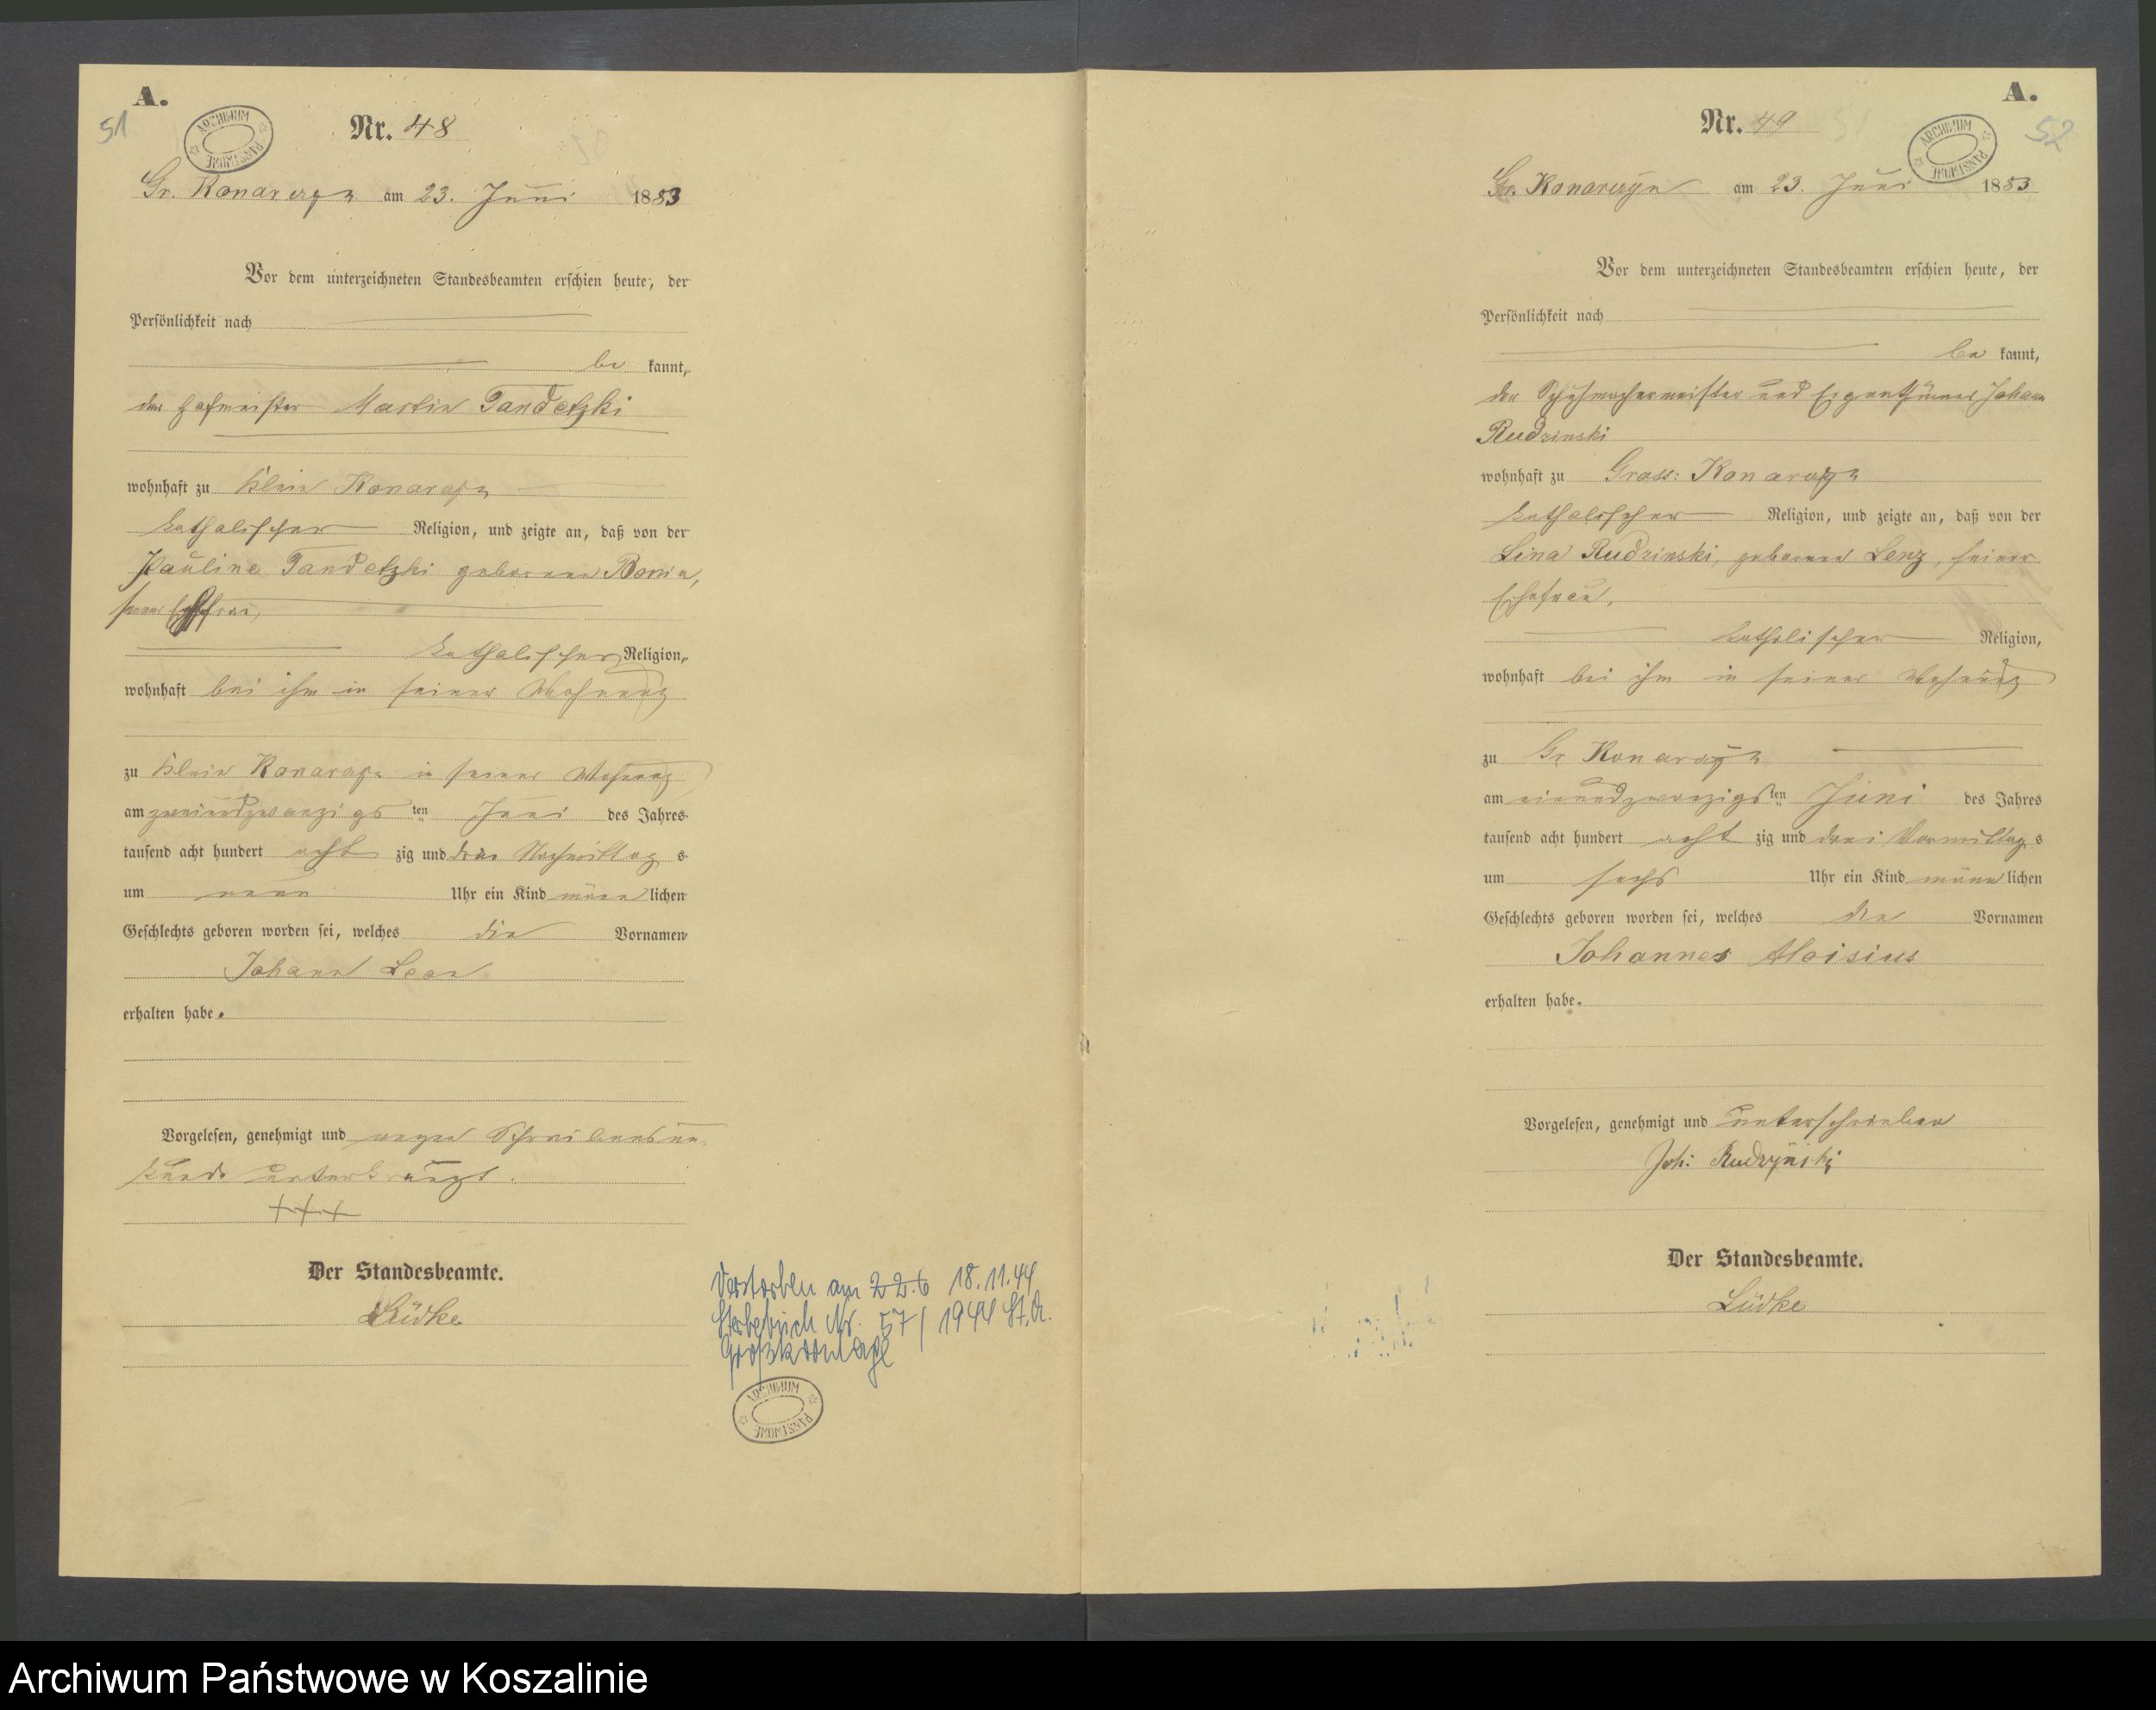 A.
51
ARCHIWUM PAŃSTWOWE
Nr. 48
Gr. Konarczyn am 23. Juni 1883
Vor dem unterzeichneten Standesbeamten erschien heute, der
Persönlichkeit nach
be kannt,
der Hofmeister Martin Tandetzki
wohnhaft zu Klein Konarczyn
katholischer Religion, und zeigte an, daß von der
Pauline Tandetzki geborenen
seiner Ehefrau,
katholischer Religion,
wohnhaft bei ihm in seiner Wohnung
zu Klein Konarczyn in seiner Wohnung
am zweiundzwanzigs ten Juni des Jahres
tausend acht hundert acht zig und drei Nachmittag s
um neun Uhr ein Kind männ lichen
Geschlechts geboren worden sei, welches die Vornamen
Johann Leon
erhalten habe.
Vorgelesen, genehmigt und wegen Schreibensun-
kunde unterkreuzt.
+++
Der Standesbeamte.
Lüdke
Verstorben am 22.6 18.11.44
Sterbebuch Nr. 57/1944 St.A.
ARCHIWUM PAŃSTWOWE
A.
52
ARCHIWUM PAŃSTWOWE
Nr. 49
Gr. Konarczyn am 23. Juni 1883
Vor dem unterzeichneten Standesbeamten erschien heute, der
Persönlichkeit nach
be kannt,
der Schuhmachermeister und Eigenthümer Johann
Rudzinski
wohnhaft zu Gross: Konarczyn
katholischer Religion, und zeigte an, daß von der
Lina Rudzinski, geborenen Lenz, seiner
Ehefrau,
katholischer Religion,
wohnhaft bei ihm in seiner Wohnung
zu Gr Konarczyn
am einundzwanzigs ten Juni des Jahres
tausend acht hundert acht zig und drei Vormittag s
um sechs Uhr ein Kind männ lichen
Geschlechts geboren worden sei, welches die Vornamen
Johannes Aloisius
erhalten habe.
Vorgelesen, genehmigt und unterschrieben
Joh: Rudzynski
Der Standesbeamte.
Lüdke
Archiwum Państwowe w Koszalinie